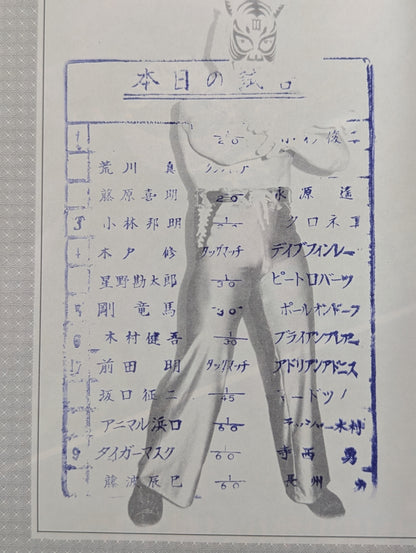 本日の試
1 1/20 俊二
荒川真 タッグマッチ
藤原喜明 20 永原遥
3 小林邦明 クロネコ
4 木戸修 タッグマッチ デイブフィンレー
星野勘太郎 1/30 ピートロバーツ
5 剛竜馬 30 ポールオンドーフ
6 木村健吾 1/30 ブライアンブレアー
前田明 タッグマッチ アドリアンアドニス
坂口征二 1/45
アニマル浜口 1/60 ラッシャー木村
9 タイガーマスク 1/60 寺西勇
藤波辰巳 1/60 長州